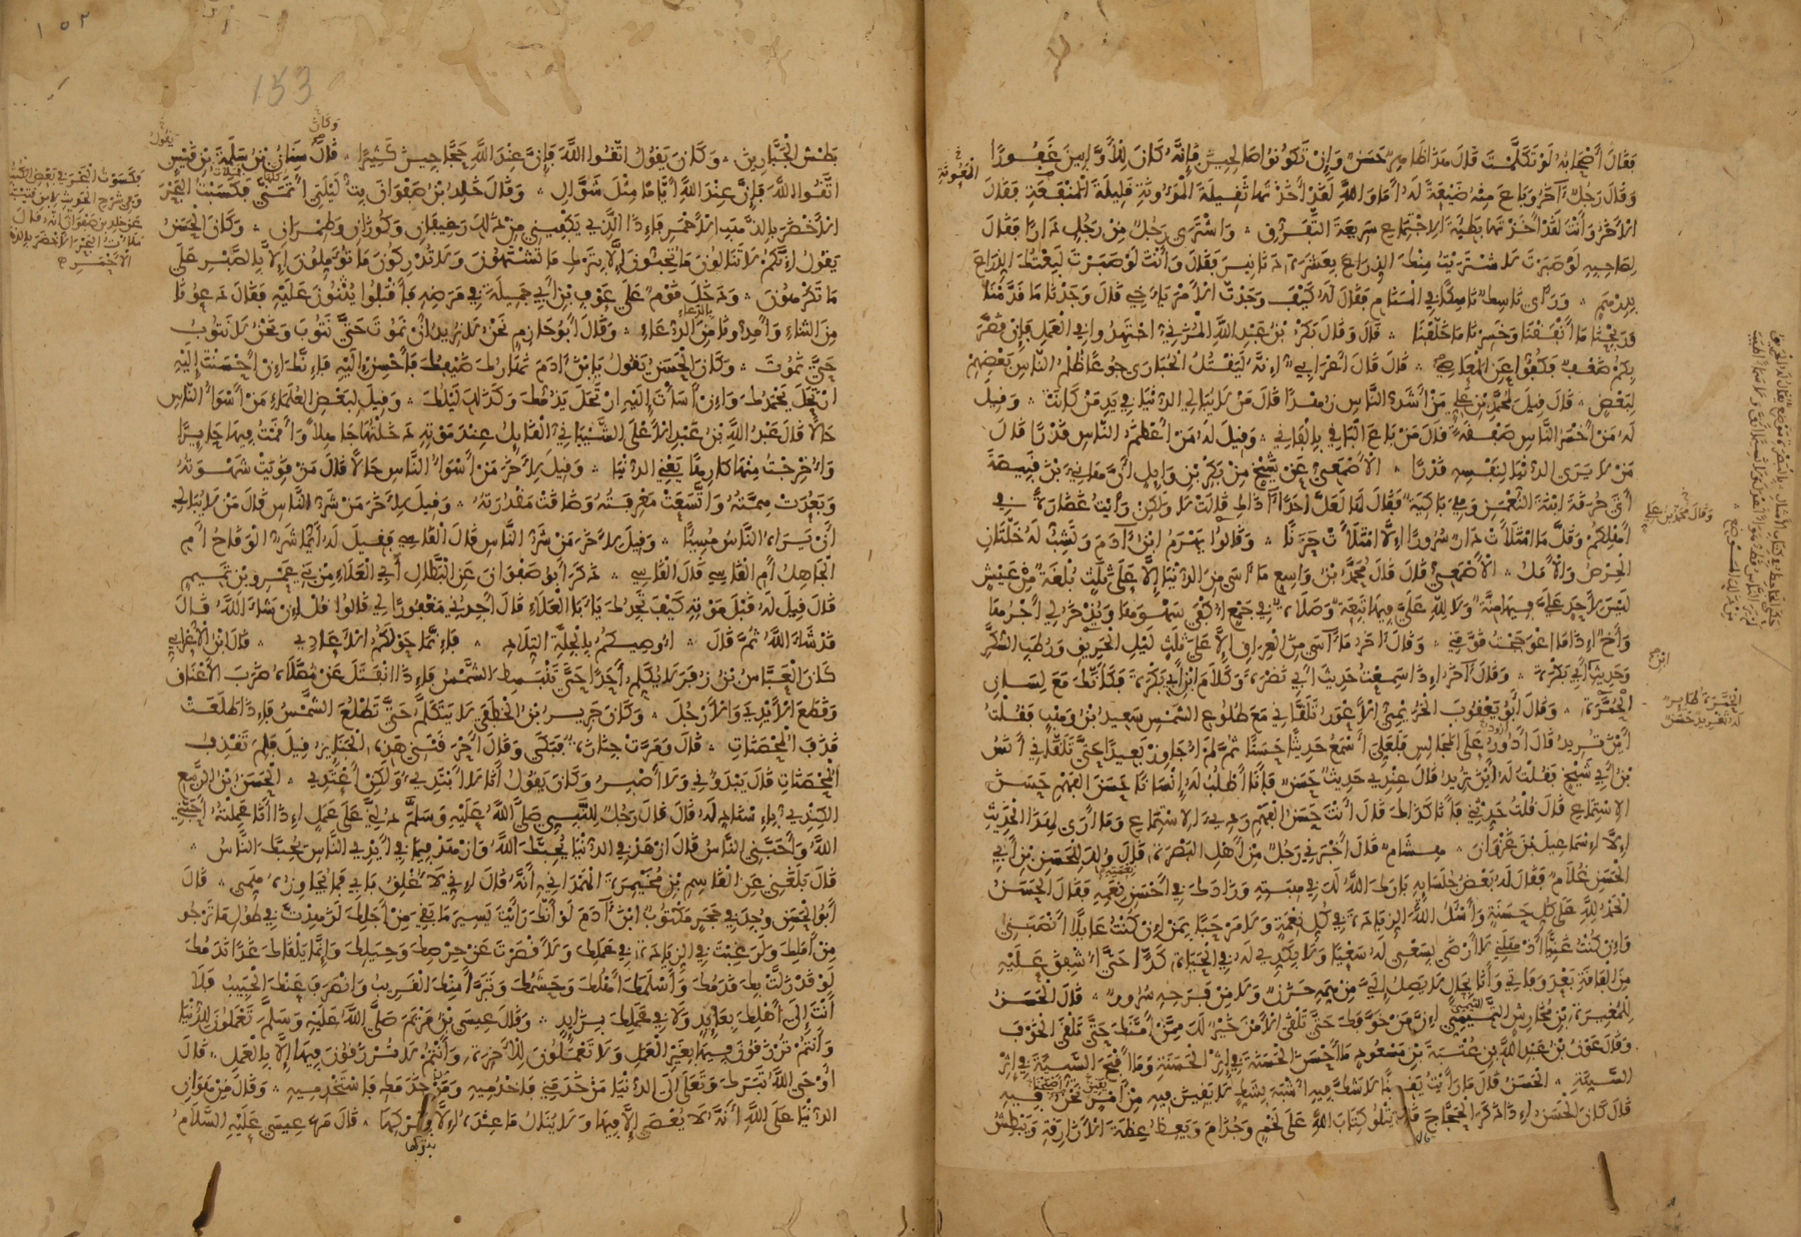 فقال أصحابه لو تكلمت قال هذا ظاهر حسن وإن تكونوا صالحين فإنه كان للأوابين غفورا
وقال رجل آخر وباع منه ضيعة له أما والله لقد أخذتها ثقيلة المؤونة قليلة المنفعة فقال
الآخر وأنت لقد أخذتها بطيئة الاجتماع سريعة التفرق واشترى رجل من رجل دارا فقال
لصاحبه لو صبرت لاشتريت منك الذراع بعشرة دنانير فقال وأنت لو صبرت لبعتك الذراع
بدرهم ورأى ناسك ناسكا في المنام فقال له كيف وجدت الأمر يا أخي قال وجدنا ما قدمنا
وربحنا ما أنفقنا وخسرنا ما خلفنا قال وقال بكر بن عبد الله المزني اجتهدوا في العمل فإن قصر
بكم ضعف فكفوا عن المعاصي قال قال أعرابي إنه ليقتل الحبارى جوعا ظلم الناس بعضهم
لبعض قال قيل لمحمد بن علي من أشد الناس زهدا قال من لا يبالي الدنيا في يد من كانت وقيل
له من أخسر الناس صفقة قال من باع الباقي بالفاني وقيل له من أعظم الناس قدرا قال
من لا يرى الدنيا لنفسه قدرا الأصمعي عن شيخ من بكر بن وائل أن هانئ بن قبيصة
أتى حرقة ابنة النعمن وهي باكية فقال لها لعل أحدا آذاك قالت لا ولكن رأيت غضارة في
أهلكم وقل ما امتلأت دار سرورا إلا امتلأت حزنا وقالوا يهرم ابن آدم وتشب له خلتان
الحرص والأمل الأصمعي قال قال محمد بن واسع ما آسى من الدنيا إلا على ثلث بلغة من عيش
ليس لأحد علي فيها منة ولا لله علي فيها تبعة وصلاة في جمع أكفى سهوها ويذخر لي أجرها
وأخ إذا ما اعوججت قومني وقال آخر ما آسى من العراق إلا على ثلث ليل الحزيز ورطب السكر
وحديث أبي بكرة وقال آخر إذا سمعت حديث أبي نضرة وكلام ابن أبي بكرة فكأنك مع لسان
الحمرة وقال أبو يعقوب الخريمي الأعور تلقاني مع طلوع الشمس سعيد بن وهب فقلت
أين تريد قال أدور على المجالس فلعلي أسمع حديثا حسنا ثم لم أجاوز بعيدا حتى تلقاني أنس
بن أبي شيخ فقلت له أين تريد قال عندي حديث حسن فأنا أطلب له إنسانا حسن الفهم حسن
الاستماع قال قلت حدثني فأنا كذاك قال أنت حسن الفهم رديء الاستماع وما أرى لهذا الحديث
إلا إسماعيل بن غزوان هشام قال أخبرني رجل من أهل البصرة قال ولد للحسن بن أبي
الحسن غلام فقال له بعض جلسائه بارك الله لك في هبته وزادك في أحسن نعمه فقال الحسن
الحمد لله على كل حسنة وأسئل الله الزيادة في كل نعمة ولا مرحبا بمن إن كنت عائلا أنصبني
وإن كنت غنيا أذهلني لا أرضى بسعيي له سعيا ولا بكدي له في الحياة كدا حتى أشفق عليه
من الفاقة بعد وفاتي وأنا بحال لا يصل إلي من همه حزن ولا من فرحه سرور قال الحسن
للمغيرة بن مخارش التميمي إن من خوفك حتى تلقى الأمن خير لك ممن أمنك حتى تلقى الخوف
وقال عون بن عبد الله بن عتبة بن مسعود ما أحسن الحسنة في إثر الحسنة وما أقبح السيئة في إثر
السيئة الحسن قال ما رأيت يقينا لا شك فيه أشبه بشك لا يقين فيه من أمر نحن فيه
قال كان الحسن إذا ذكر الحجاج قال يتلو كتاب الله على لخم وجذام ويعظ عظة الأزارقة ويبطش
المئونة
وقال محمد بن علي
بطش الجبارين وكان يقول اتقوا الله فإن عند الله حجاجين كثيرا قال سنان بن سلمة بن قيس
اتقوا الله فإن عند الله أياما مثل شوال وقال خلد بن صفوان بت ليلتي أتمنى فكسبت البحر
الأخضر بالذهب الأحمر فإذا الذي يكفيني من ذلك رغيفان وكوزان وطمران وكان الحسن
يقول إنكم لا تنالون ما تحبون إلا بترك ما تشتهون ولا تدركون ما تؤملون إلا بالصبر على
ما تكرهون ودخل قوم على عوف بن أبي جميلة في مرضه فأقبلوا يثنون عليه فقال دعونا
من الثناء وأمدونا من الدعاء وقال أبو حازم نحن لا نريد أن نموت حتى نتوب ونحن لا نتوب
حتى نموت وكان الحسن يقول يا ابن آدم نهارك ضيفك فأحسن إليه فإنك إن أحسنت إليه
ارتحل بحمدك وإن أسأت إليه ارتحل بذمك وكذلك ليلك وقيل لبعض العلماء من أسوأ الناس
حالا قال عبد الله بن عبد الأعلى الشيباني القائل عند موته دخلتها جاهلا وأقمت فيها حائرا
وأخرجت منها كارها يعني الدنيا وقيل لآخر من أسوأ الناس حالا قال من قويت شهوته
وبعدت همته واتسعت معرفته وضاقت مقدرته وقيل لآخر من شر الناس قال من لا يبالي
أن يراه الناس مسيئا وقيل لآخر من شر الناس قال القاسي فقيل له أيما شر الوقاح أم
الجاهل أم القاسي قال القاسي ذكر أبو صفوان عن البطال أبي العلاء من بني عمرو بن تميم
قال قيل له قبل موته كيف تجدك يا با العلاء قال أجدني مغفورا لي قالوا قل إن شاء الله قال
قد شاء الله ثم قال أوصيكم بالجلة التلاد فإنما حولكم الأعادي قال ابن الأعرابي
كان العباس بن زفر لا يكلم أحدا حتى تنبسط الشمس فإذا انفتل عن مصلاه ضرب الأعناق
وقطع الأيدي والأرجل وكان جرير بن الخطفي لا يتكلم حتى تطلع الشمس فإذا طلعت
قذف المحصنات قال ومرت جنازة فبكى وقال أحرقتني هذه الجنايز قيل فلم تقذف
المحصنات قال يبدؤني ولا أصبر وكان يقول أنا لا أبتدي ولكن أعتدي الحسن بن الربيع
الكندي بإسناد له قال قال رجل للنبي صلى الله عليه وسلم دلني على عمل إذا أنا عملته أحبني
الله وأحبني الناس قال ازهد في الدنيا يحبك الله وازهد فيما في أيدي الناس يحبك الناس
قال بلغني عن القاسم بن مخيمرة الهمداني أنه قال إني لأغلق بابي فما يجاوزه همي قال
أبو الحسن وجد في حجر مكتوب ابن آدم لو أنك رأيت يسير ما بقي من أجلك لزهدت في طول ما ترجو
من أملك ولرغبت في الزيادة في عملك ولأقصرت عن حرصك وحيلك وإنما يلقاك غدا ندمك
لو قد زلت بك قدمك وأسلمك أهلك وحشمك وتبرأ منك القريب وانصرف عنك الحبيب فلا
أنت إلى أهلك بعايد ولا في عملك بزايد وقال عيسى بن مريم صلى الله عليه وسلم تعملون للدنيا
وأنتم ترزقون فيها بغير العمل ولا تعملون للآخرة وأنتم لا ترزقون فيها إلا بالعمل قال
أوحى الله تبرك وتعلى إلى الدنيا من خدمني فاخدميه ومن خدمك فاستخدميه وقال من هوان
الدنيا على الله أنه لا يعصى إلا فيها ولا ينال ما عنده إلا بتركها قال مر عيسى عليه السلام
وكان
يقول
153
١٥٢